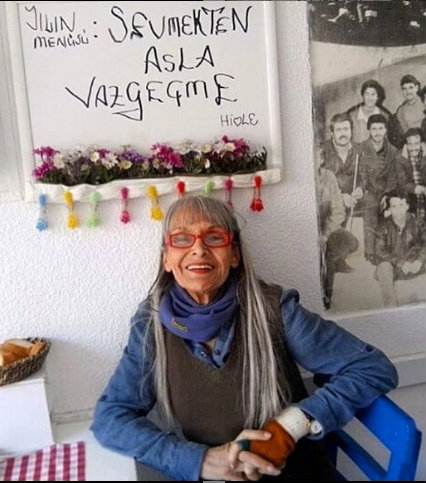 YILIN
MENÜSÜ : SEVMEKTEN
ASLA
VAZGEÇME
HiDLE